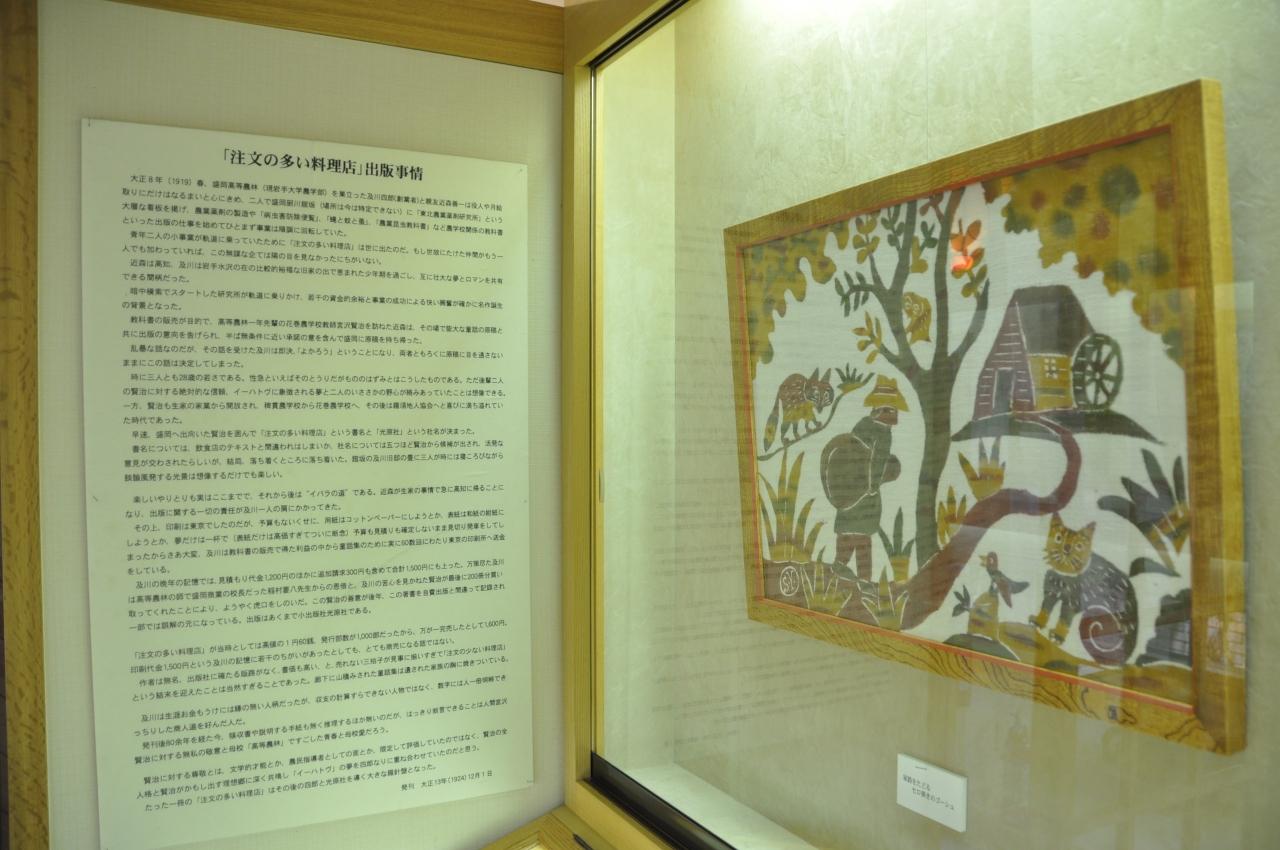 「注文の多い料理店」出版事情
大正8年（1919）春、盛岡高等農林（現岩手大学農学部）を巣立った及川四郎(創業者)と親友近森善一は役人や月給
取りにだけはなるまいと心にきめ、二人で盛岡厨川館坂（場所は今は特定できない）に「東北農業薬剤研究所」という
大層な看板を掲げ、農業薬剤の製造や「病虫害防除便覧」、「蝿と蚊と蚤」、「農業昆虫教科書」など農学校関係の教科書
といった出版の仕事を始めてひとまず事業は順調に回転していた。
青年二人の小事業が軌道に乗っていたために「注文の多い料理店」は世に出たのだ。もし世故にたけた仲間がもう一
人でも加わっていれば、この無謀な企ては陽の目を見なかったにちがいない。
近森は高知、及川は岩手水沢の在の比較的裕福な旧家の出で恵まれた少年期を過ごし、互に壮大な夢とロマンを共有
できる間柄だった。
暗中模索でスタートした研究所が軌道に乗りかけ、若干の資金的余裕と事業の成功による快い興奮が確かに名作誕生
の背景となった。
教科書の販売が目的で、高等農林一年先輩の花巻農学校教師宮沢賢治を訪ねた近森は、その場で膨大な童話の原稿と
共に出版の意向を告げられ、半ば無条件に近い承諾の意を含んで盛岡に原稿を持ち帰った。
乱暴な話なのだが、その話を受けた及川は即決、「よかろう」ということになり、両者ともろくに原稿に目を通さない
ままにこの話は決定してしまった。
時に三人とも28歳の若さである。性急といえばそのとうりだがもののはずみとはこうしたものである。ただ後輩二人
の賢治に対する絶対的な信頼、イーハトヴに象徴される夢と二人のいささかの野心が絡みあっていたことは想像できる。
一方、賢治も生家の家業から開放され、稗貫農学校から花巻農学校へ、その後は羅須地人協会へと喜びに満ち溢れてい
た時代であった。
早速、盛岡へ出向いた賢治を囲んで「注文の多い料理店」という書名と「光原社」という社名が決まった。
書名については、飲食店のテキストと間違われはしまいか、社名については五つほど賢治から候補が出され、活発な
意見が交わされたらしいが、結局、落ち着くところに落ち着いた。館坂の及川旧邸の畳に三人が時には寝ころびながら
談論風発する光景は想像するだけでも楽しい。
楽しいやりとりも実はここまでで、それから後は“イバラの道”である。近森が生家の事情で急に高知に帰ることに
なり、出版に関する一切の責任が及川一人の肩にかかってきた。
その上、印刷は東京でしたのだが、予算もないくせに、用紙はコットンペーパーにしようとか、表紙は和紙の紺紙に
しようとか、夢だけは一杯で（表紙だけは高価すぎてついに断念）予算も見積りも確定しないまま見切り発車をしてし
まったからさあ大変、及川は教科書の販売で得た利益の中から童話集のために実に60数回にわたり東京の印刷所へ送金
をしている。
及川の晩年の記憶では、見積もり代金1,200円のほかに追加請求300円も含めて合計1,500円にも上った。万策尽きた及川
は高等農林の師で盛岡商業の校長だった稲村要八先生からの恩借と、及川の苦心を見かねた賢治が最後に200冊分買い
取ってくれたことにより、ようやく虎口をしのいだ。この賢治の善意が後年、この著書を自費出版と間違って記録され
一部では誤解の元になっている。出版はあくまで小出版社光原社である。
「注文の多い料理店」が当時としては高値の1円60銭、発行部数が1,000部だったから、万が一完売したとして1,600円。
印刷代金1,500円という及川の記憶に若干のちがいがあったとしても、とても商売になる話ではない。
作者は無名、出版社に確たる販路がなく、書価も高い、と、売れない三拍子が見事に揃いすぎて「注文の少ない料理店」
という結末を迎えたことは当然すぎることであった。廊下に山積みされた童話集は遺された家族の胸に焼きついている。
及川は生涯お金もうけには縁の無い人柄だったが、収支の計算すらできない人物ではなく、数字には人一倍明晰でき
っちりした商人道を好んだ人だ。
発刊後80余年を経た今、領収書や説明する手紙も無く推理するほか無いのだが、はっきり断言できることは人間宮沢
賢治に対する無私の敬意と母校「高等農林」ですごした青春と母校愛だろう。
賢治に対する尊敬とは、文学的才能とか、農民指導者としての面とか、限定して評価していたのではなく、賢治の全
人格と賢治がかもし出す理想郷に深く共鳴し「イーハトヴ」の夢を四郎なりに重ね合わせていたのだと思う。
たった一冊の「注文の多い料理店」はその後の四郎と光原社を導く大きな羅針盤となった。
発刊 大正13年(1924)12月1日
家路をたどる
セロ弾きのゴーシュ